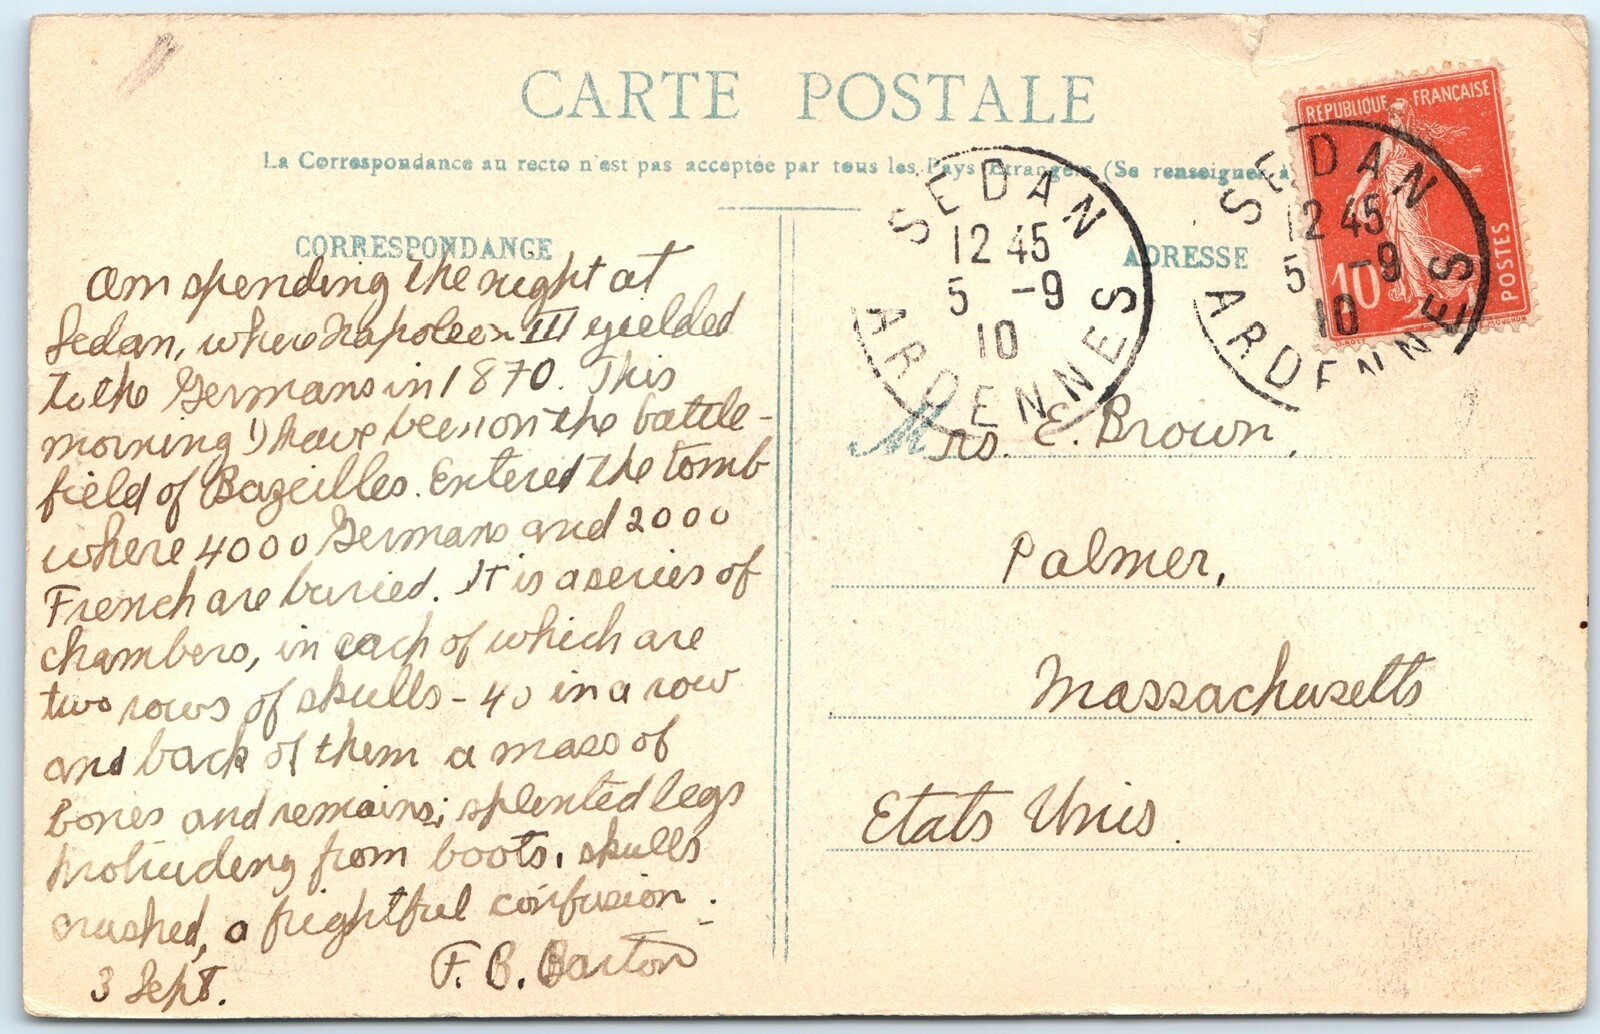 CARTE POSTALE
La Correspondance au recto n'est pas acceptée par tous les Pays Etrangers (Se renseigner à
CORRESPONDANCE
Am spending the night at
Sedan, where Napoleon III yielded
to the Germans in 1870. This
morning I have been on the battle-
field of Bazeilles. Entered the tomb
where 4000 Germans and 2000
French are buried. It is a series of
chambers, in each of which are
two rows of skulls - 40 in a row
and back of them a mass of
bones and remains; splented legs
protruding from boots, skulls
crushed, a frightful confusion.
3 Sept. F. B. Barton
SEDAN
12 45
5 -9
10
ARDENNES
ADRESSE
REPUBLIQUE FRANÇAISE
10
POSTES
O. ROTY
L. MOUCHON
SEDAN
12 45
5 -9
10
ARDENNES
Mrs. E. Brown,
Palmer,
Massachusetts
Etats Unis.